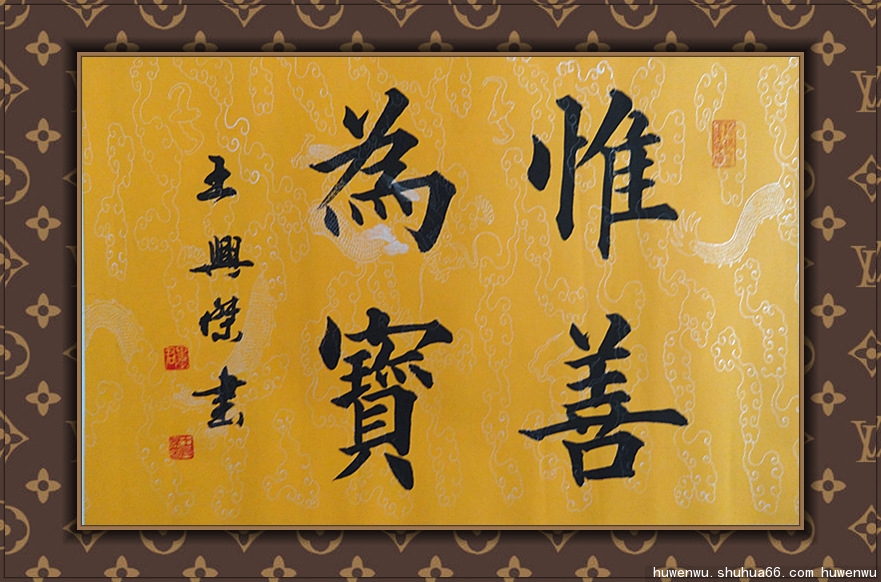 惟善
為寶
王興傑書
huwenwu.shuhua66.com huwenwu